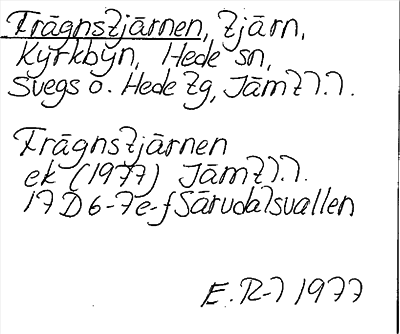 Frāgnstjārnen, tjārn,
Kyrkbyn, Hede sn,
Svegs o. Hede tg, Jāmtl.l.
Frāgnstjārnen
ek (1977) Jāmtl.l.
17D 6-7e-f Sārvdalsvallen
E.R-l 1977